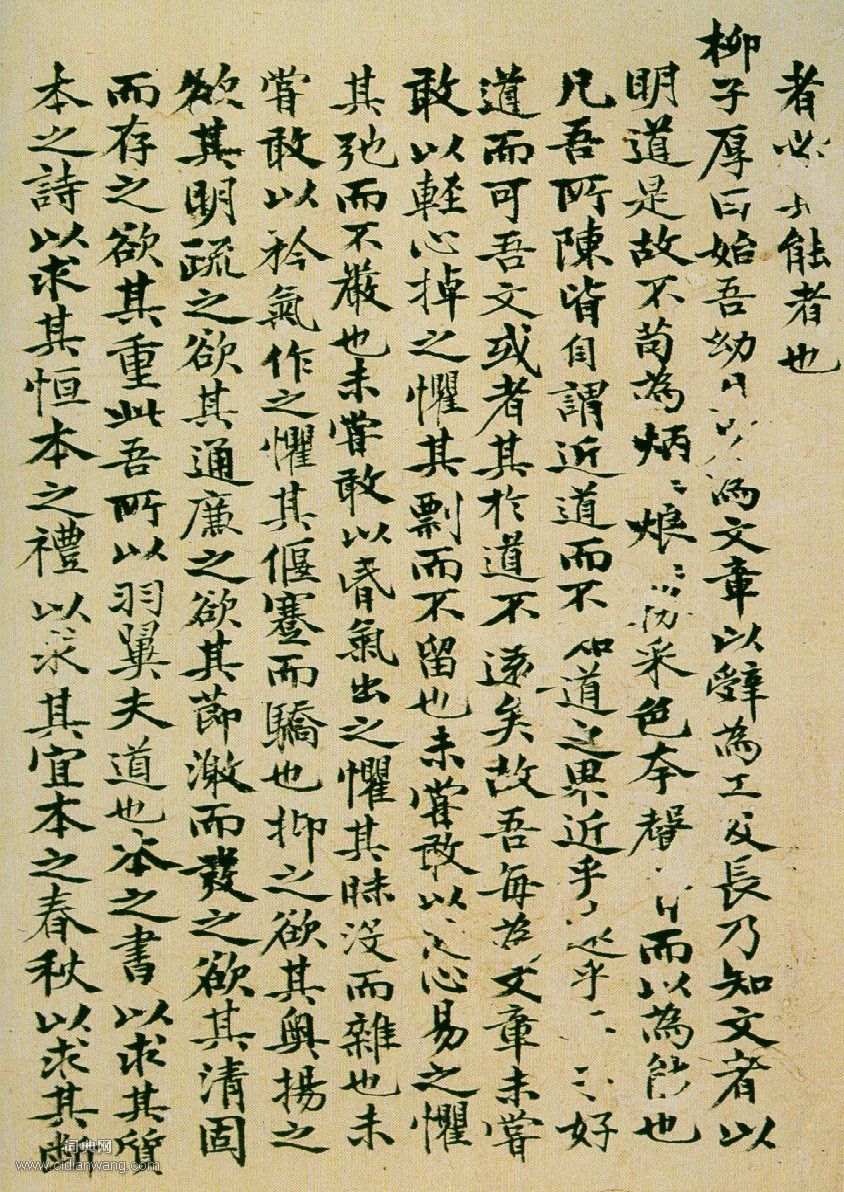 者必能者也
柳子厚曰始吾幼為文章以辭為工及長乃知文者以
明道是故不苟為炳〻烺〻采色夸聲而以為能也
凡吾所陳皆自謂近道而不知道之果近乎遠乎好
道而可吾文或者其於道不遠矣故吾每為文章未嘗
敢以輕心掉之懼其剽而不留也未嘗敢以心易之懼
其弛而不嚴也未嘗敢以昏氣出之懼其昧沒而雜也未
嘗敢以矜氣作之懼其偃蹇而驕也抑之欲其奧揚之
欲其明疏之欲其通廉之欲其節激而發之欲其清固
而存之欲其重此吾所以羽翼夫道也本之書以求其質
本之詩以求其恒本之禮以求其宜本之春秋以求其斷
词典网
www.cidianwang.com